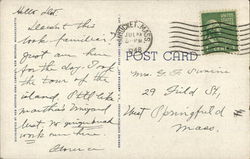 Hello Dot.
Doesn't this
look familiar?
Just am here
for the day. Took
the tour of the
island. Still like
Martha's Vineyard
best. No gingerbread
work over here.
Florence
NANTUCKET, MASS.
JUL
PM
1948
POST CARD
Mrs. E. F.
29 Field St,
West Springfield
Mass.